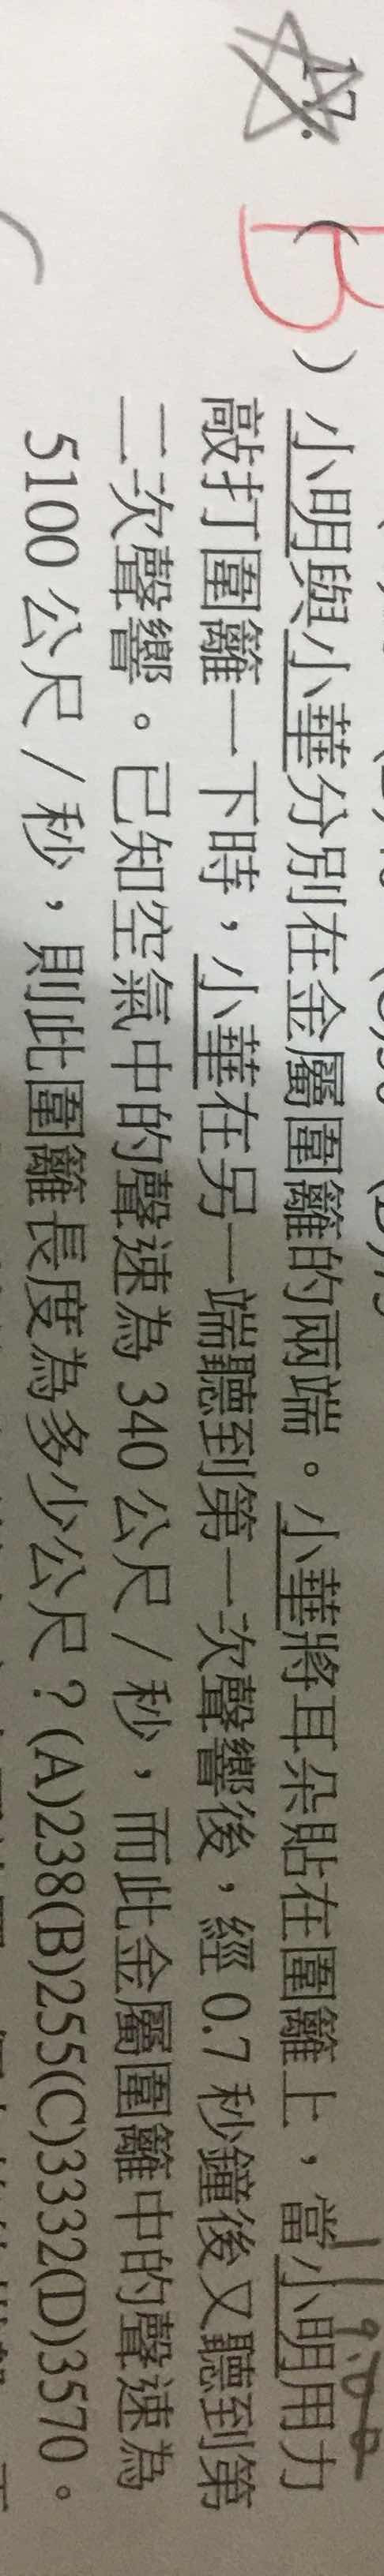 17. ( B ) 小明與小華分別在金屬圍籬的兩端。小華將耳朵貼在圍籬上，當小明用力
敲打圍籬一下時，小華在另一端聽到第一次聲響後，經 0.7 秒鐘後又聽到第
二次聲響。已知空氣中的聲速為 340 公尺／秒，而此金屬圍籬中的聲速為
5100 公尺／秒，則此圍籬長度為多少公尺？(A)238(B)255(C)3332(D)3570。